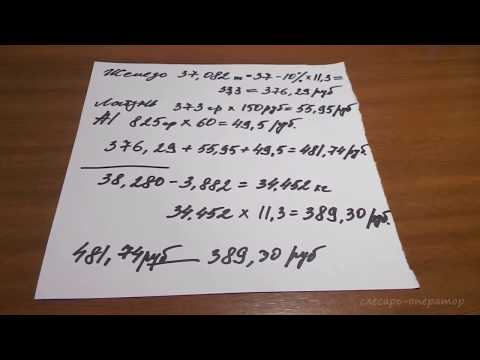 Железо 37,082 т = 37 - 10% × 11,3 =
333 = 376,29 руб
Латунь 373 гр × 150 руб = 55,95 руб
Al 825 гр × 60 = 49,5 руб.
376,29 + 55,95 + 49,5 = 481,74 руб.
38,280 - 3,882 = 34.452 кг
34.452 × 11,3 = 389,30 руб.
481,74 руб — 389,30 руб
слесарь-оператор